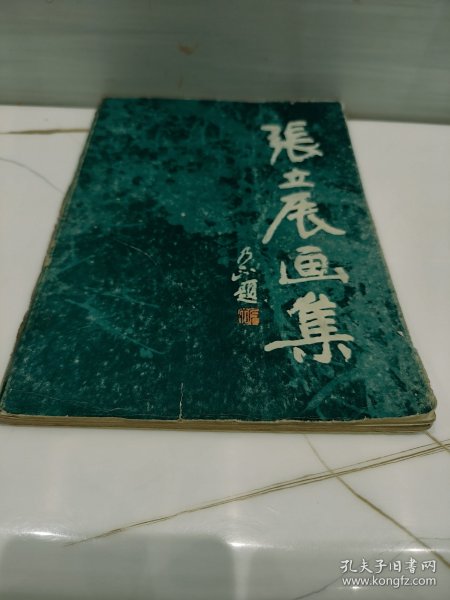 張立展画集
乃正题
孔夫子旧书网
www.kongfz.com